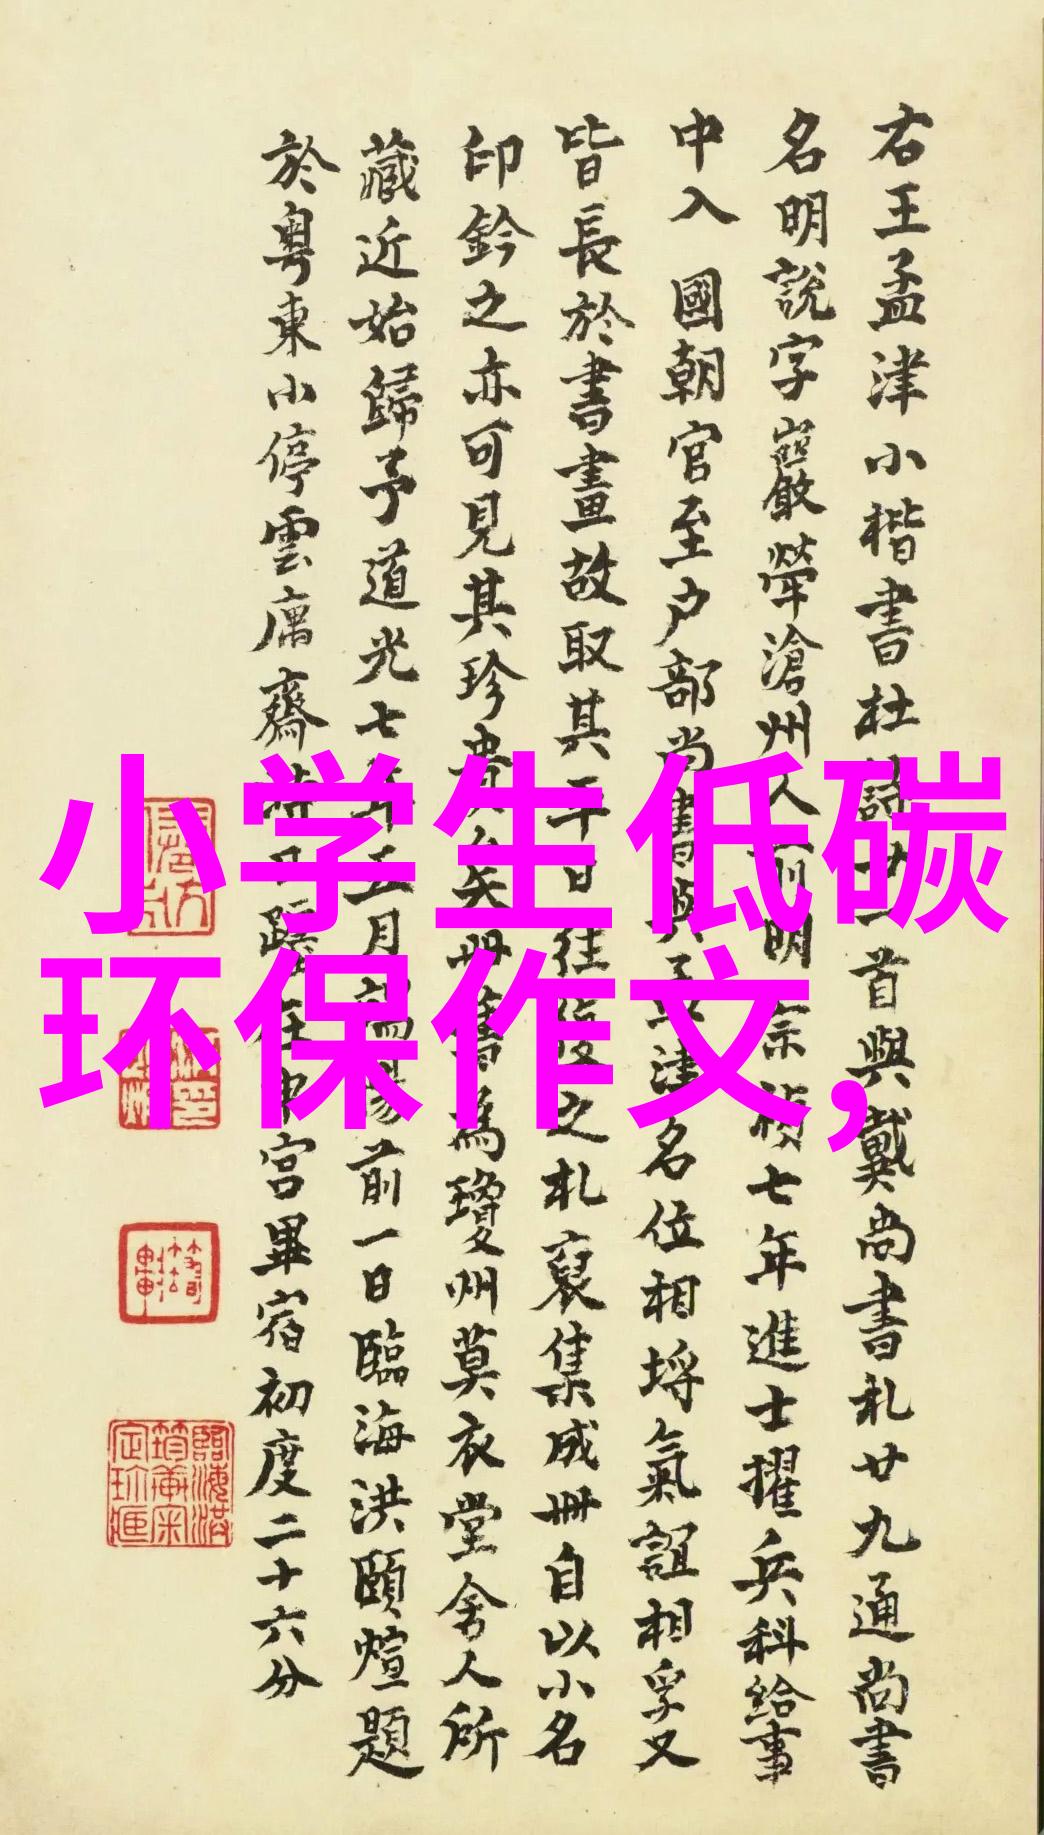 右王孟津小楷書杜詩廿一首與戴尚書札廿九通尚書
名明說字巖犖滄州人前明崇禎七年進士擢兵科給事
中入 國朝官至户部尚書與孟津名位相埒氣誼相孚又
皆長於書畫故取其平日往復之札裒集成冊自以小名
印鈐之亦可見其珍貴矣冊舊為瓊州莫衣堂舍人所
藏近始歸予道光七年五月端陽前一日臨海洪頤煊題
於粵東小停雲廎齋時日躔在申宮畢宿初度二十六分
小学生低碳
环保作文,